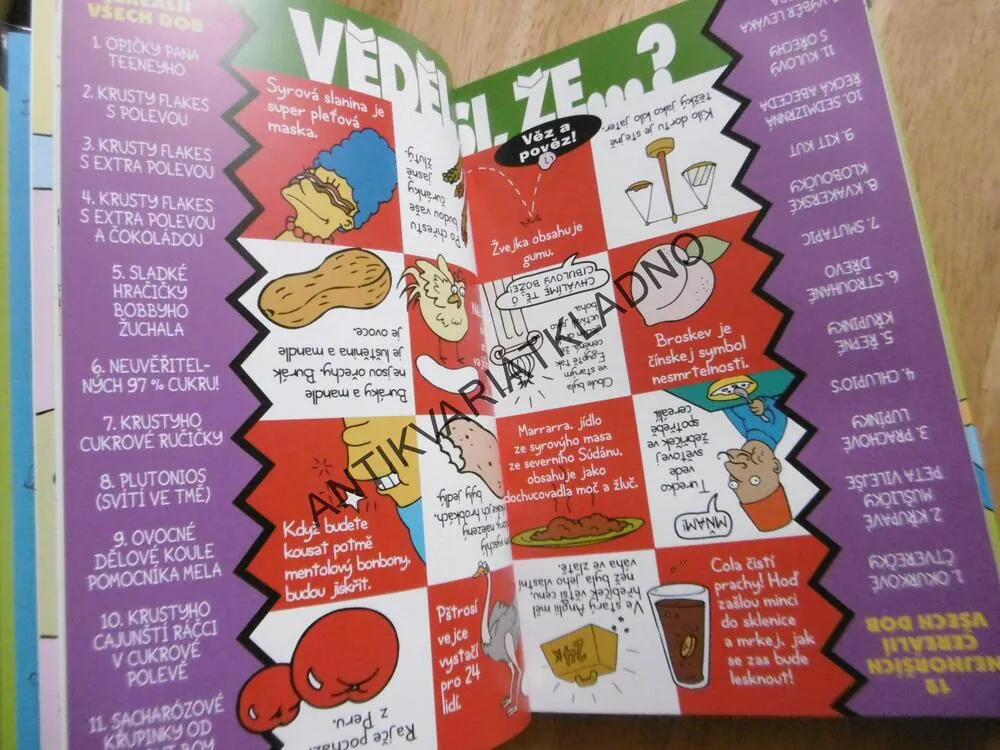 VŠECH DOB
1. OPIČKY PANA
TEENEYHO
2. KRUSTY FLAKES
S POLEVOU
3. KRUSTY FLAKES
S EXTRA POLEVOU
4. KRUSTY FLAKES
S EXTRA POLEVOU
A ČOKOLÁDOU
5. SLADKÉ
HRAČIČKY
BOBBYHO
ŽUCHALA
6. NEUVĚŘITEL-
NÝCH 97 % CUKRU!
7. KRUSTYHO
CUKROVÉ RUČIČKY
8. PLUTONIOS
(SVÍTÍ VE TMĚ)
9. OVOCNÉ
DĚLOVÉ KOULE
POMOCNÍKA MELA
10. KRUSTYHO
CAJUNŠTÍ RÁČCI
V CUKROVÉ
POLEVĚ
11. SACHARÓZOVÉ
KŘUPINKY OD
VĚDĚLI, ŽE...?
Syrová slanina je
super pleťová
maska.
Po chřestu
budou vaše
čuránky
jasně
žluťý.
Věz a
pověz!
Žvejka obsahuje
gumu.
Kilo dortu je stejně
těžký jako kilo jater.
Buráky a mandle
nejsou ořechy. Burák
je luštěnina a mandle
je ovoce.
CHVÁLÍME TĚ, Ó
CIBULOVÝ BOŽE!
Cibule byla
ve starým
Egyptě tak
ceněná, že
uctívali jako
boha.
Broskev je
čínskej symbol
nesmrtelnosti.
Když budete
kousat potmě
mentolový bonbony,
budou jiskřit.
byly jedlý.
Marrarra, jídlo
ze syrovýho masa
ze severního Súdánu,
obsahuje jako
dochucovadla moč a žluč.
Turecko
vede
světovej
žebříček ve
spotřebě
cereálií.
MŇAM!
Rajče pochází
z Peru.
Pštrosí
vejce
vystačí
pro 24
lidí.
Ve starý Anglii měl
hřebíček větší cenu,
než byla jeho vlastní
váha ve zlatě.
24K
Cola čistí
prachy! Hoď
zašlou minci
do sklenice
a mrkej, jak
se zas bude
lesknout!
12
NEJHORŠÍCH
CEREÁLIÍ
VŠECH DOB
1. OKURKOVÉ
ČTVEREČKY
2. KŘUPAVÉ
MUŠLIČKY
PETA VILEJŠE
3. PRACHOVÉ
LUPÍNKY
4. CHLUPIO'S
5. ŘEPNÉ
KŘUPINKY
6. STROUHANÉ
DŘEVO
7. SMUTAPIC
8. KVAKERSKÉ
KLOBOUČKY
9. KIT KUT
10. SEDMIZRNNÁ
ŘECKÁ ABECEDA
11. KULOVÝ
S OŘECHY
VÝBĚR LEVÁKA
ANTIKVARIATKLADNO